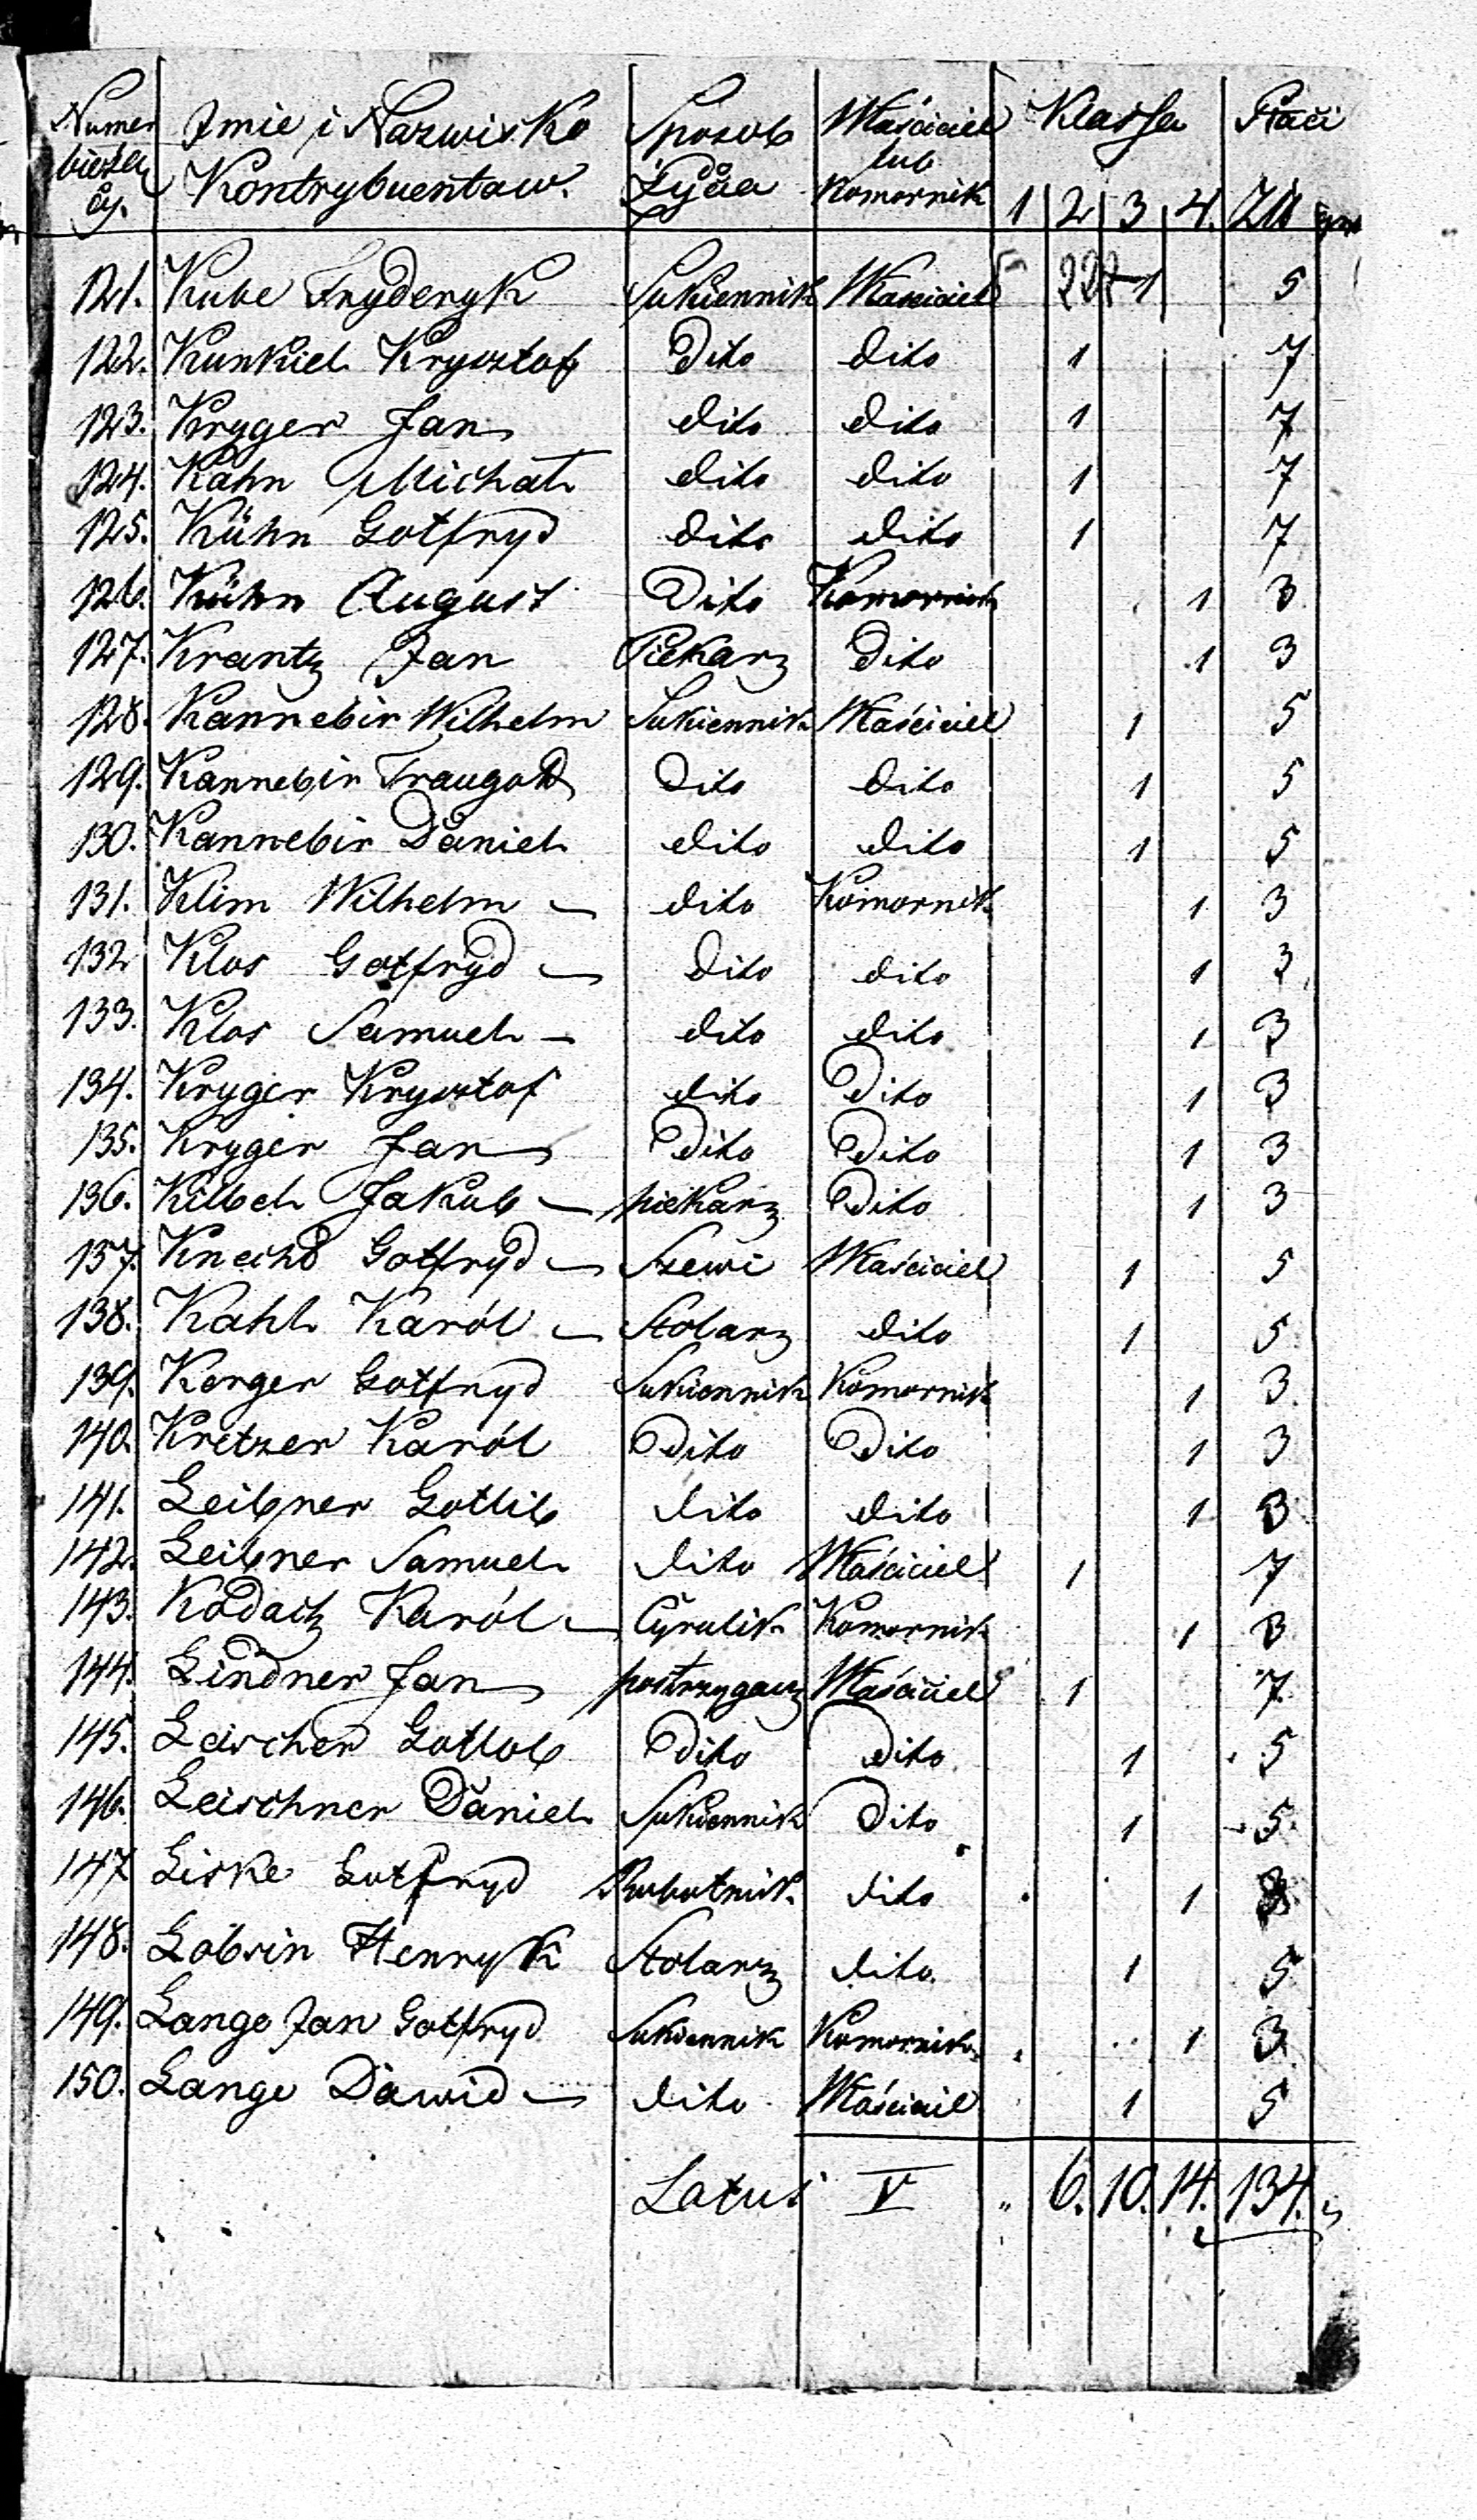 Numer Imie i Nazwisko Sposob Właściciel Klassa Płaci
bieżą lub
cy. Kontrybuentow. Życia Komornik 1 2 3 4. Złł gr
121. Kube Fryderyk Sukiennik Właściciel 1 5
122. Kunkiel Krysztof Dito dito 1 7
123. Kryger Jan dito dito 1 7
124. Kahn Michał dito dito 1 7
125. Kühn Gotfryd dito dito 1 7
126. Kühn August Dito Komornik 1 3
127. Krantz Jan Piekarz Dito 1 3
128. Kannebir Wilhelm Sukiennik Właściciel 1 5
129. Kannebir Traugott Dito dito 1 5
130. Kannebir Daniel dito dito 1 5
131. Klim Wilhelm — dito Komornik 1 3
132 Klos Gotfryd — Dito dito 1 3
133. Klos Samuel — dito dito 1 3
134. Kryger Krysztof dito Dito 1 3
135. Kryger Jan Dito Dito 1 3
136. Kilbel Jakub — piekarz Dito 1 3
137. Knecht Gotfryd — Szewc Właściciel 1 5
138. Kahl Karól — Stolarz dito 1 5
139. Kerger Gotfryd Sukiennik Komornik 1 3
140. Kretzer Karól Dito Dito 1 3
141. Leibner Gotlib dito dito 1 3
142. Leibner Samuel dito Właściciel 1 7
143. Kodaitz Karól — Cyrulik Komornik 1 3
144. Lindner Jan postrzygacz Właściciel 1 7
145. Leischer Gottlob Dito Dito 1 5
146. Leischner Daniel Sukiennik Dito 1 5
147 Liske Gotfryd Robotnik dito 1 3
148. Lobsin Henryk Stolarz dito 1 5
149. Lange Jan Gotfryd Sukiennik Komornik 1 3
150. Lange Dawid — dito Właściciel 1 5
Latus V " 6. 10. 14. 134. "